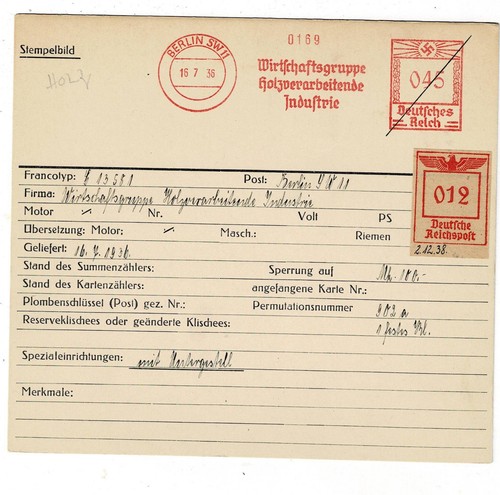 Stempelbild
HOLZ
BERLIN SW11
16 7 36
0169
Wirtschaftsgruppe
Holzverarbeitende
Industrie
045
Deutsches
Reich
012
Deutsche
Reichspost
2.12.38.
Francotyp: 13581 Post: Berlin SW 11
Firma: Wirtschaftsgruppe Holzverarbeitende Industrie
Motor Nr. Volt PS
Übersetzung: Motor: Masch.: Riemen
Geliefert: 16.7.1936.
Stand des Summenzählers: Sperrung auf Mk. 100.-
Stand des Kartenzählers: angefangene Karte Nr.:
Plombenschlüssel (Post) gez. Nr.: Permutationsnummer 902 a
Reserveklischees oder geänderte Klischees: 1 festes
Spezialeinrichtungen: mit Untergestell
Merkmale: